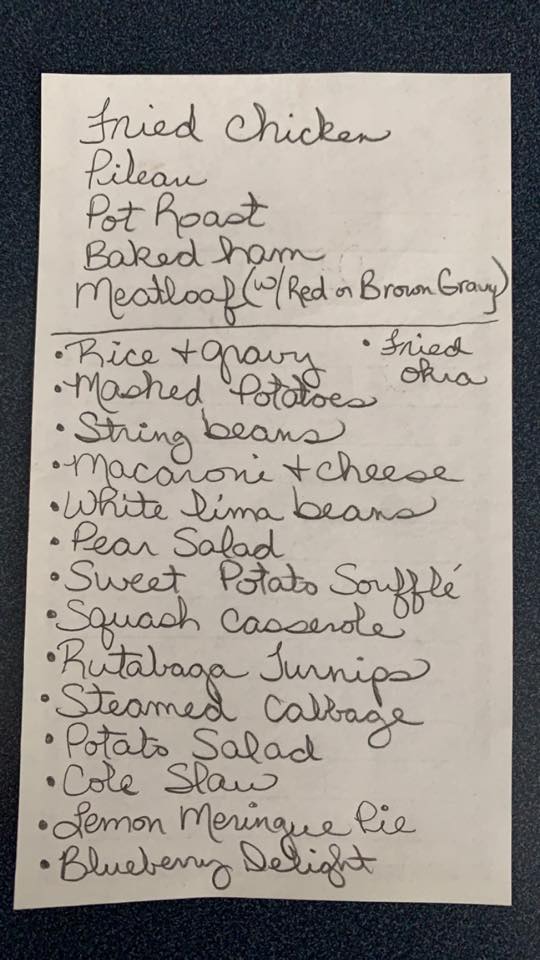 Fried Chicken
Pileau
Pot Roast
Baked ham
Meatloaf (w/ Red or Brown Gravy)
• Rice + gravy
• Fried
okra
• Mashed Potatoes
• String beans
• Macaroni + cheese
• White lima beans
• Pear Salad
• Sweet Potato Soufflé
• Squash Casserole
• Rutabaga Turnips
• Steamed Cabbage
• Potato Salad
• Cole Slaw
• Lemon Meringue Pie
• Blueberry Delight